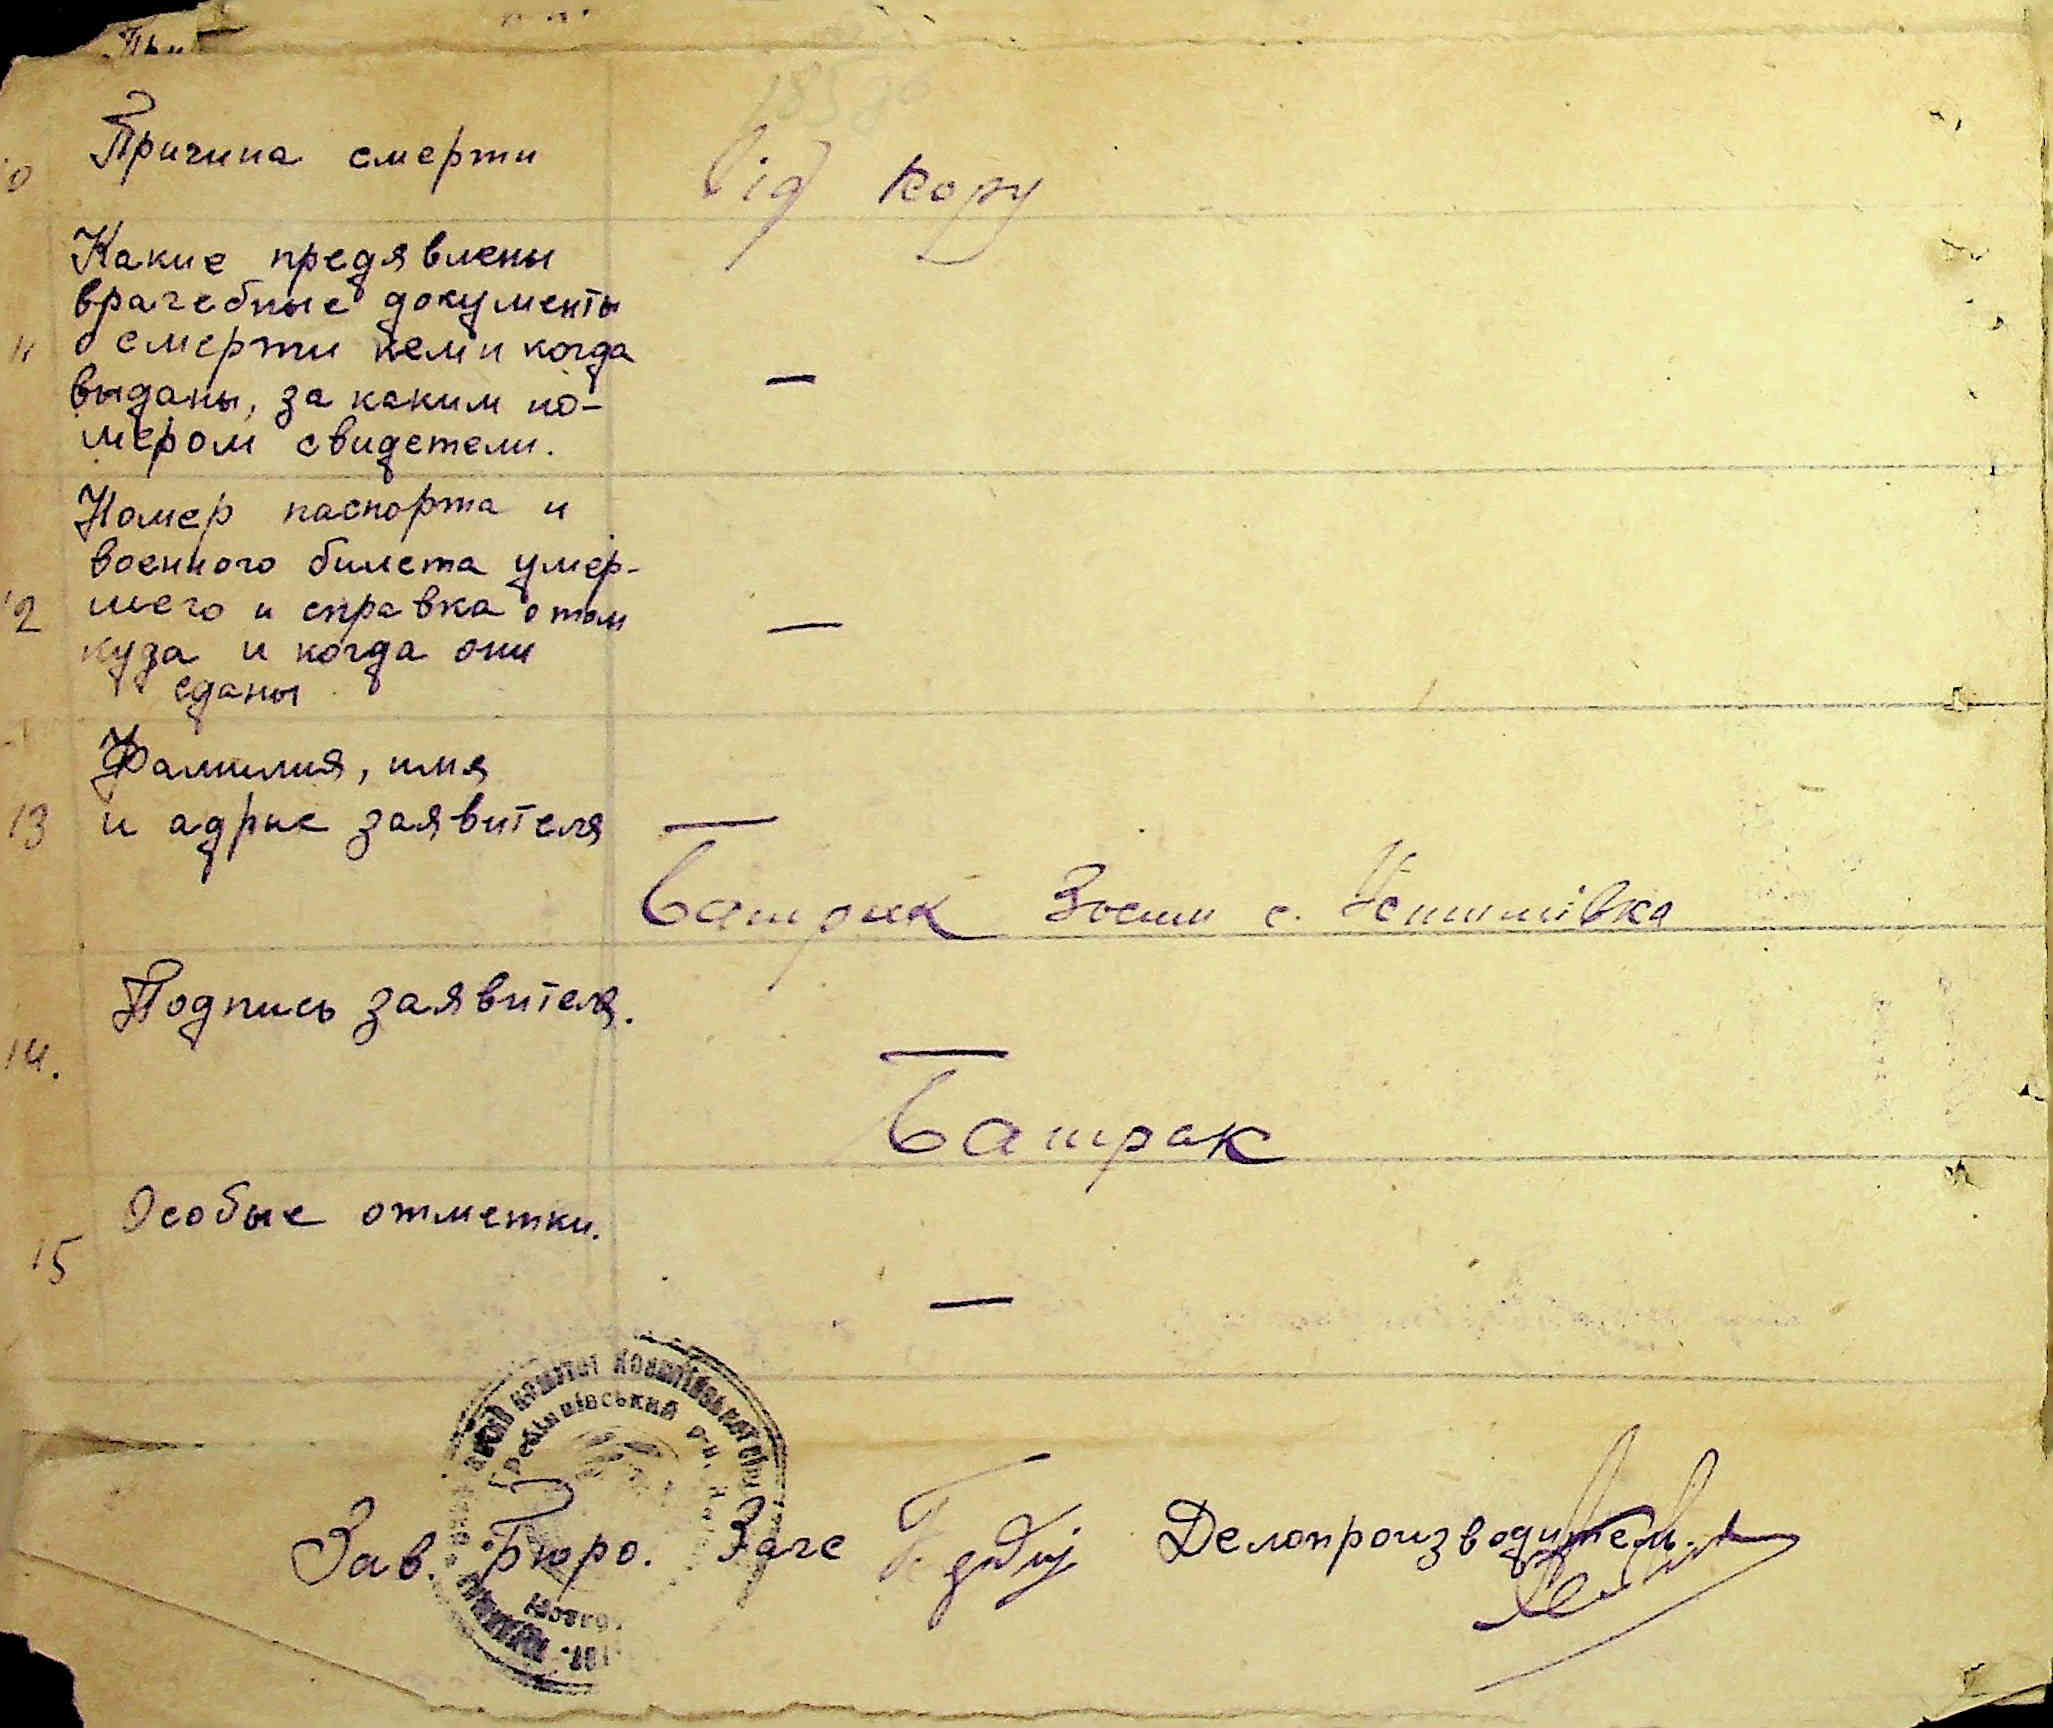 10 Причина смерти Від кору
Какие предявлены
врачебные документы
11 о смерти кем и когда
выданы, за каким но- —
мером свидетели.
Номер паспорта и
военного билета умер-
12 шего и справка о том —
куда и когда они
сданы
Фамилия, имя
13 и адрис заявителя
Батрак Зосим с. Устимівка
14. Подпись заявителя.
Батрак
15 Особые отметки.
—
Гребінківський р-н.
Зав. Бюро. Загс Делопроизводитель.